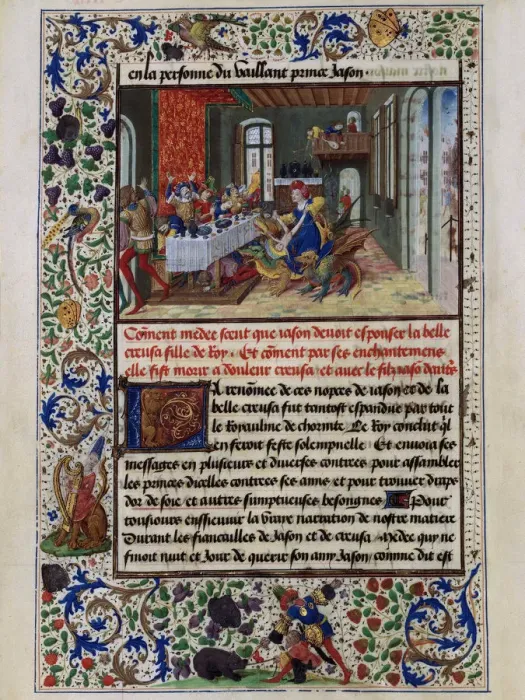 en la personne du vaillant prince Jason
Cōment medee scent que iason devoit esponser la belle
creusa fille de Roy. Et cōment par ses enchantemens
elle fist morir a douleur creusa, et avec le filz
La renōmee de ces nopces de iason et de la
belle creusa fut tantost espandue par tout
le Royaulme de chorinte. Le Roy conclut ql̄
en feroit feste solempnelle Et envoia ses
messages en plusieurs et diverses contrees pour assembler
les princes dicelles contrees ses amis et pour trouver draps
dor de soie et autres sumptueuses besongnes Pour
tousiours ensievuir la vraye narration de nostre matiere
Durant les fiancailles de Jason et de creusa. Medee qui ne
finoit nuit et Jour de querir son amy Jason, comme dit est